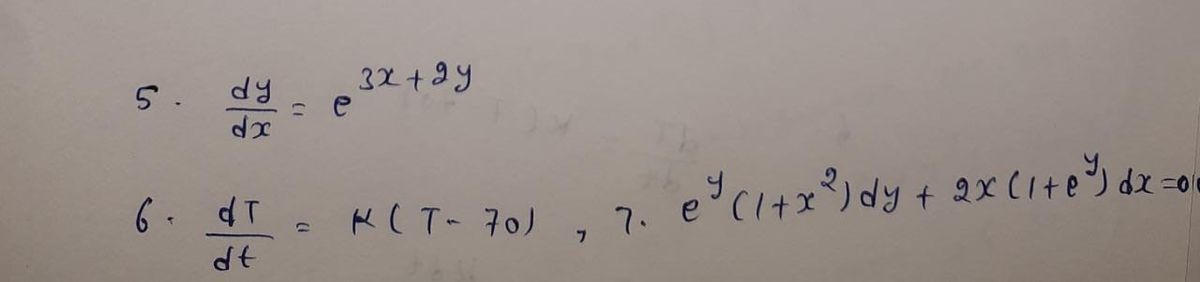 5. dy/dx = e^{3x+2y}
6. dT/dt = K(T-70), 7. e^y(1+x^2)dy + 2x(1+e^y)dx=0